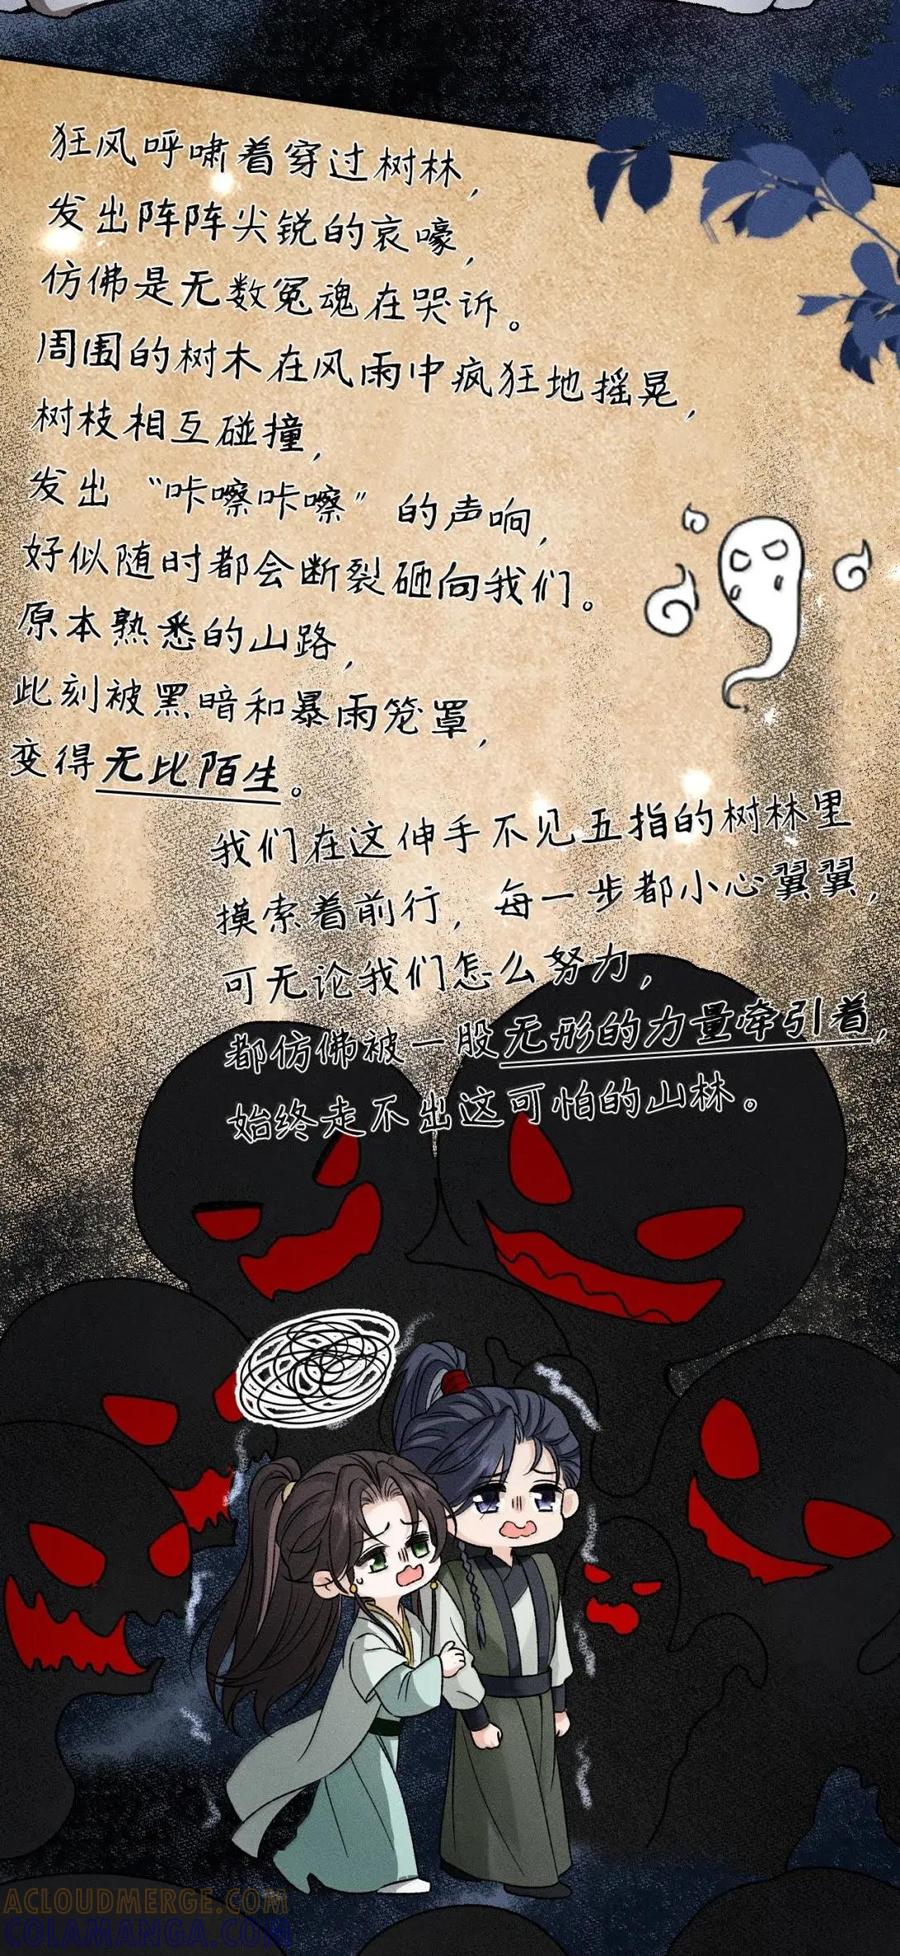 狂风呼啸着穿过树林，
发出阵阵尖锐的哀嚎，
仿佛是无数冤魂在哭诉。
周围的树木在风雨中疯狂地摇晃，
树枝相互碰撞，
发出“咔嚓咔嚓”的声响，
好似随时都会断裂砸向我们。
原本熟悉的山路，
此刻被黑暗和暴雨笼罩，
变得无比陌生。
我们在这伸手不见五指的树林里
摸索着前行，每一步都小心翼翼，
可无论我们怎么努力，
都仿佛被一股无形的力量牵引着，
始终走不出这可怕的山林。
ACLOUDMERGE.COM
COLAMANGA.COM